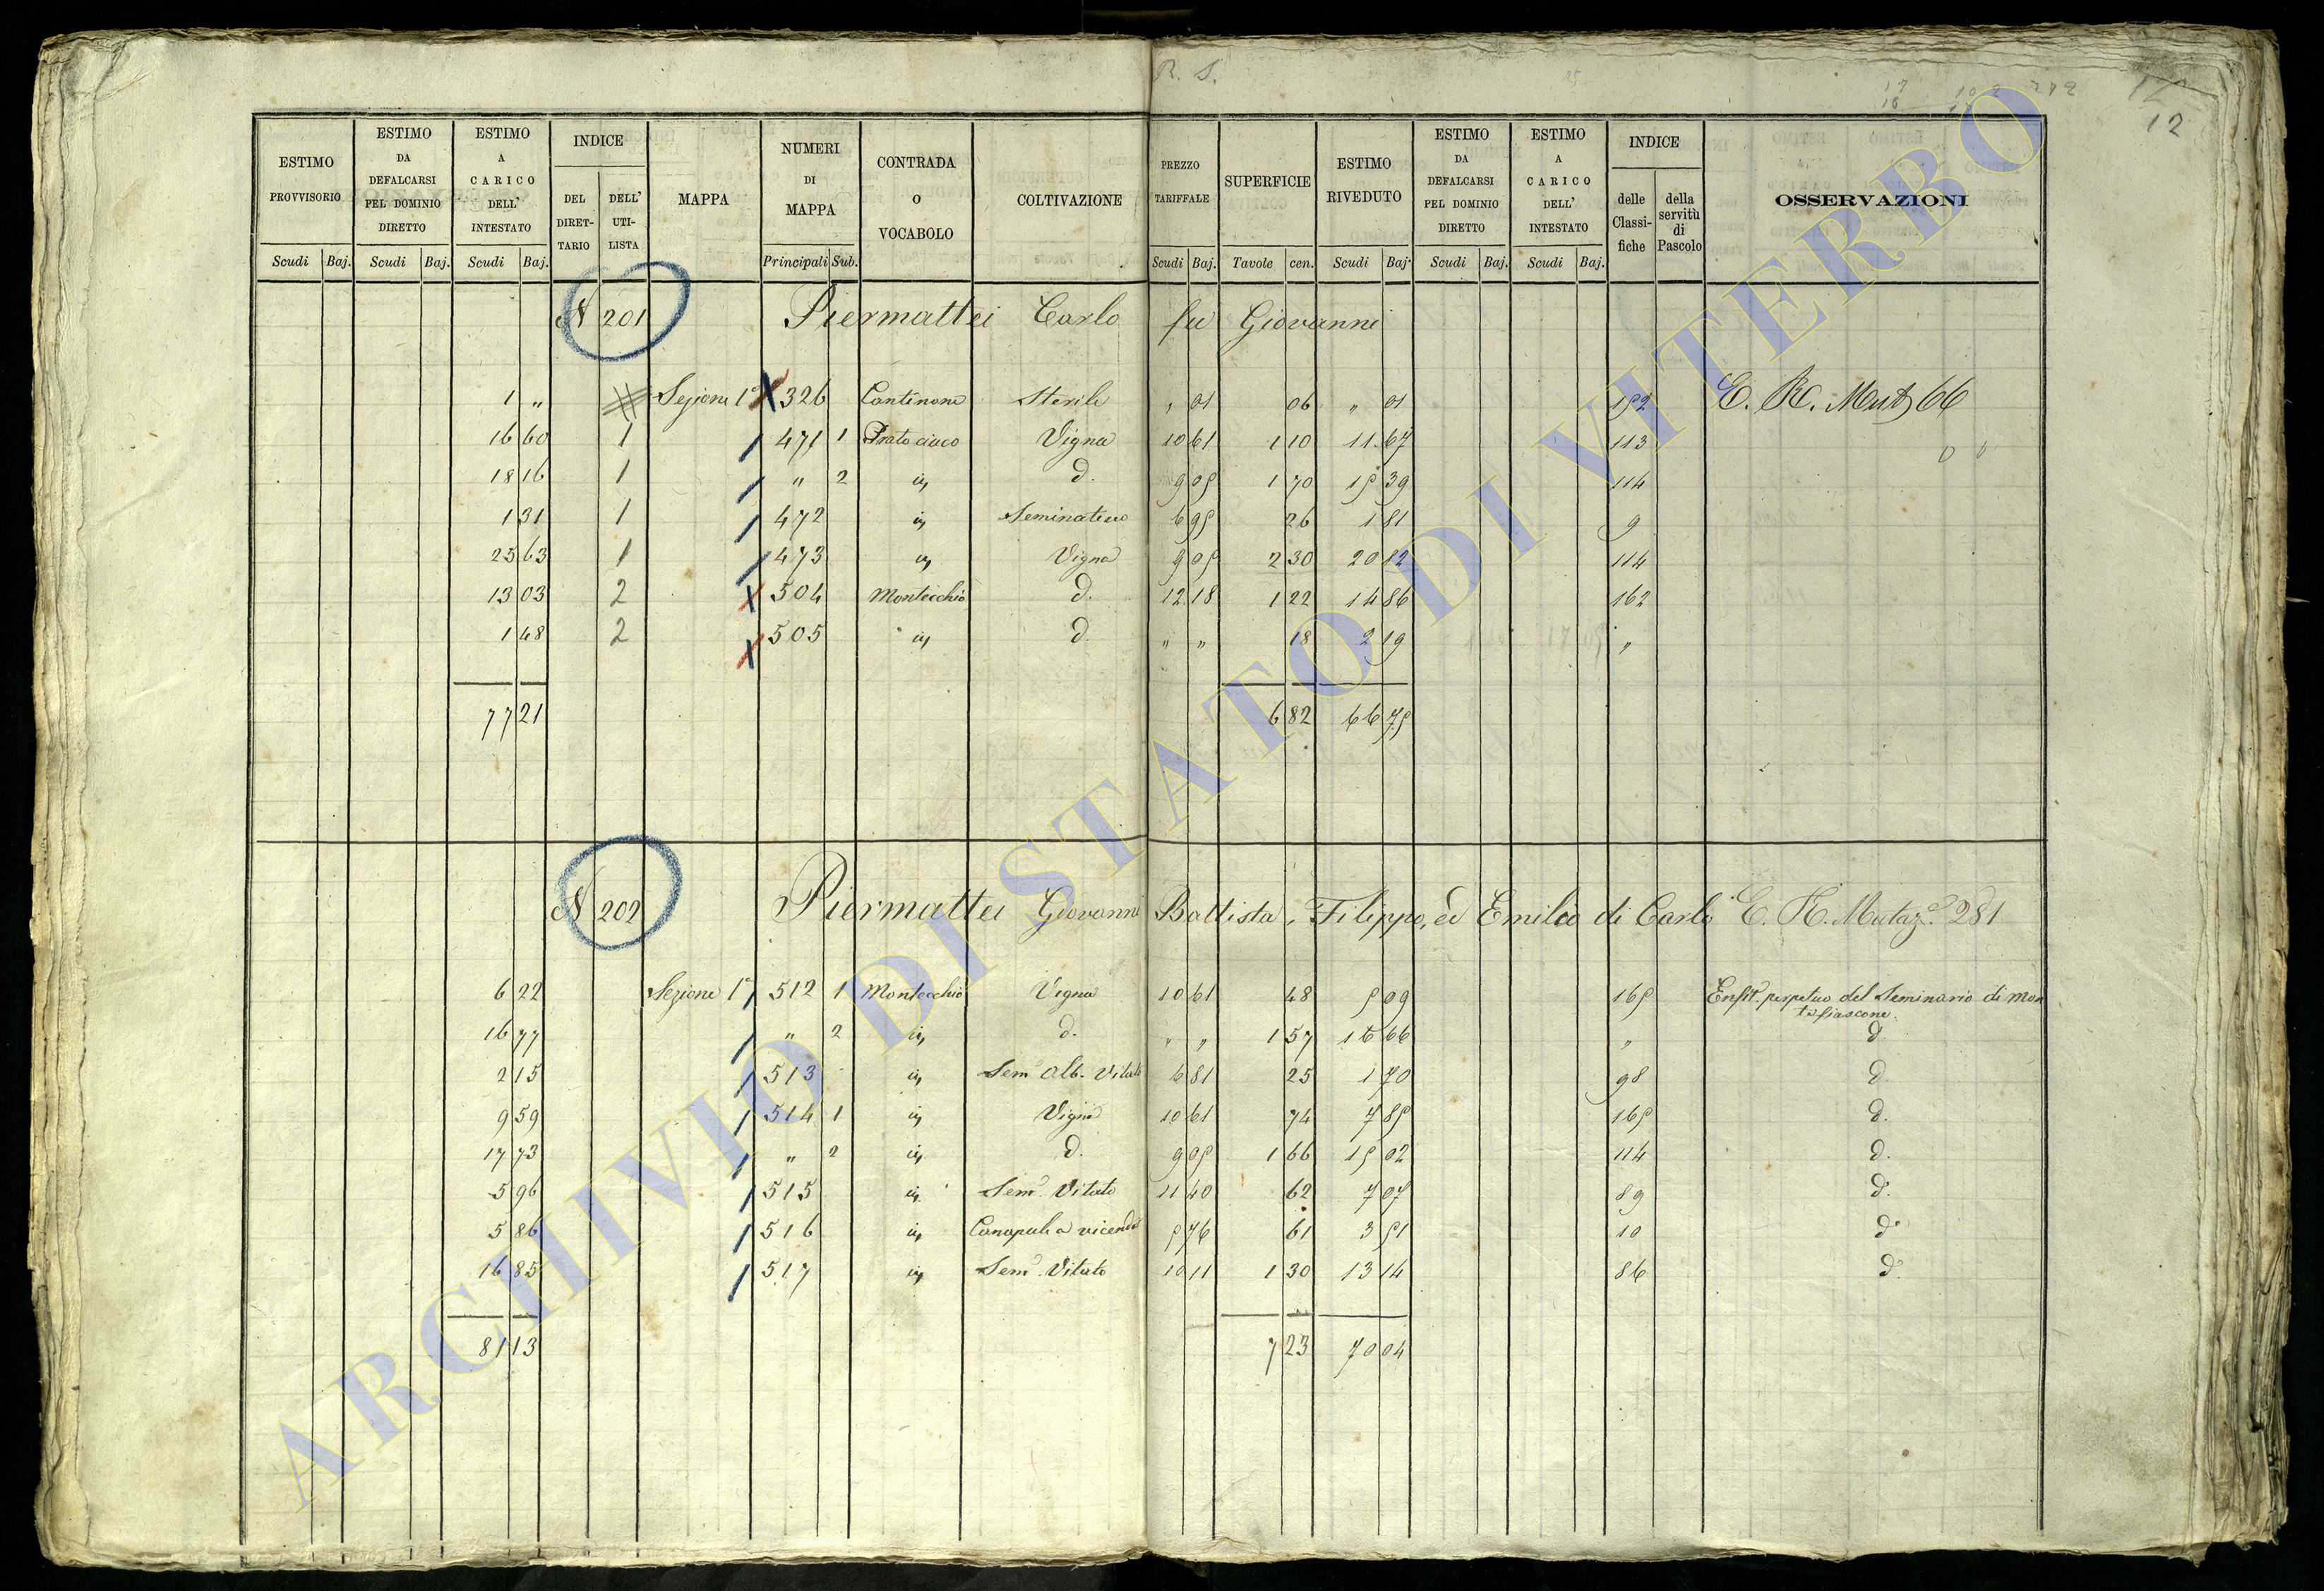 R. S.
12
ESTIMO PROVVISORIO Scudi Baj.
ESTIMO DA DEFALCARSI PEL DOMINIO DIRETTO Scudi Baj.
ESTIMO A CARICO DELL' INTESTATO Scudi Baj.
INDICE DEL DIRETTARIO DELL' UTILISTA
MAPPA
NUMERI DI MAPPA Principali Sub.
CONTRADA O VOCABOLO
COLTIVAZIONE
PREZZO TARIFFALE Scudi Baj.
SUPERFICIE Tavole cen.
ESTIMO RIVEDUTO Scudi Baj.
ESTIMO DA DEFALCARSI PEL DOMINIO DIRETTO Scudi Baj.
ESTIMO A CARICO DELL' INTESTATO Scudi Baj.
INDICE delle Classifiche della servitù di Pascolo
OSSERVAZIONI
N 201 Piermattei Carlo fu Giovanni
1 „ Sezione 1ª 326 Cantinone Sterile „ 01 06 „ 01 192 E. R. Mut 66
16 60 1 471 1 Prato ciaco Vigna 10 61 1 10 11 67 113
18 16 1 „ 2 in d. 9 05 1 70 15 39 114
1 31 1 472 in Seminativo 6 95 26 1 81 9
25 63 1 473 in Vigna 9 05 2 30 20 82 114
13 03 2 504 Montecchio d. 12 18 1 22 14 86 162
1 48 2 505 in d. „ „ 18 2 19 „
77 21 6 82 66 75
N 202 Piermattei Giovanni Battista, Filippo, ed Emilio di Carlo E. R. Mutazᵉ 281
6 22 Sezione 1ª 512 1 Montecchio Vigna 10 61 48 5 09 165 Enfit. perpetuo del Seminario di Montefiascone.
16 77 „ 2 in d. „ „ 1 57 16 66 „ d
2 15 513 in Sem. Alb. Vitato 6 81 25 1 70 98 d
9 59 514 1 in Vigna 10 61 74 7 85 165 d.
17 73 „ 2 in d. 9 05 1 66 15 02 114 d.
5 96 515 in Sem. Vitato 11 40 62 7 07 89 d.
5 86 516 in Canapule a vicenda 5 76 61 3 51 10 d.
16 85 517 in Sem. Vitato 10 11 1 30 13 14 86 d.
81 13 7 23 70 04
ARCHIVIO DI STATO DI VITERBO